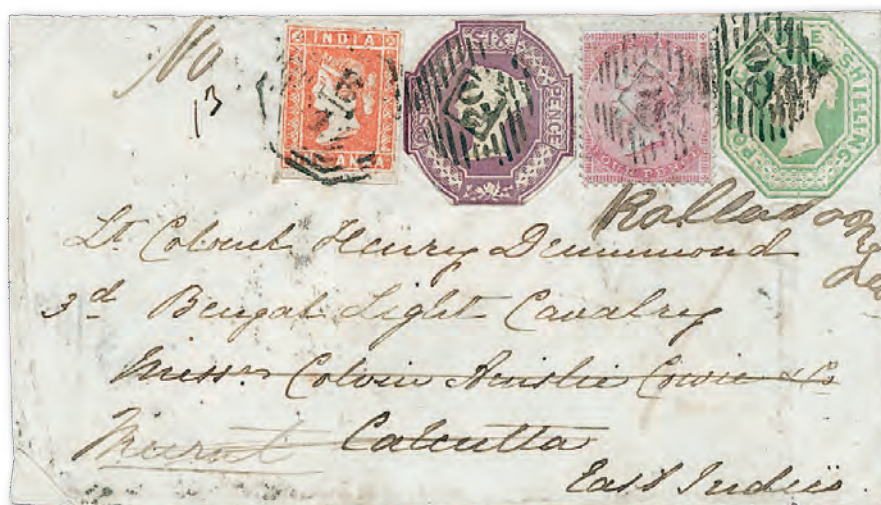 No
13
INDIA
ANNA
SIX
PENCE
FOUR PENCE
ONE
SHILLING
Lt Colonel Henry Drummond
3d Bengal Light Cavalry
Messrs Colvin Ainslie Cowie & Co
Meerut Calcutta
East Indies.